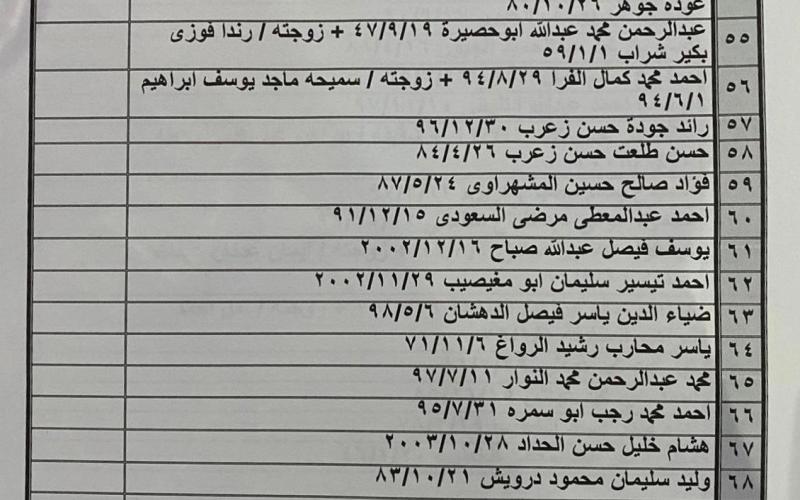 عوده جوهر ٨٠/١٠/٢٦
٥٥ عبدالرحمن محمد عبدالله ابوحصيرة ٤٧/٩/١٩ + زوجته / رندا فوزى
بكير شراب ٥٩/١/١
٥٦ احمد محمد كمال الفرا ٩٤/٨/٢٩ + زوجته / سميحه ماجد يوسف ابراهيم
٩٤/٦/١
٥٧ رائد جودة حسن زعرب ٩٦/١٢/٣٠
٥٨ حسن طلعت حسن زعرب ٨٤/٤/٢٦
٥٩ فؤاد صالح حسين المشهراوى ٨٧/٥/٢٤
٦٠ احمد عبدالمعطى مرضى السعودى ٩١/١٢/١٥
٦١ يوسف فيصل عبدالله صباح ٢٠٠٢/١٢/١٦
٦٢ احمد تيسير سليمان ابو مغيصيب ٢٠٠٢/١١/٢٩
٦٣ ضياء الدين ياسر فيصل الدهشان ٩٨/٥/٦
٦٤ ياسر محارب رشيد الرواغ ٧١/١١/٦
٦٥ محمد عبدالرحمن محمد النوار ٩٧/٧/١١
٦٦ احمد محمد رجب ابو سمره ٩٥/٧/٣١
٦٧ هشام خليل حسن الحداد ٢٠٠٣/١٠/٢٨
٦٨ وليد سليمان محمود درويش ٨٣/١٠/٢١